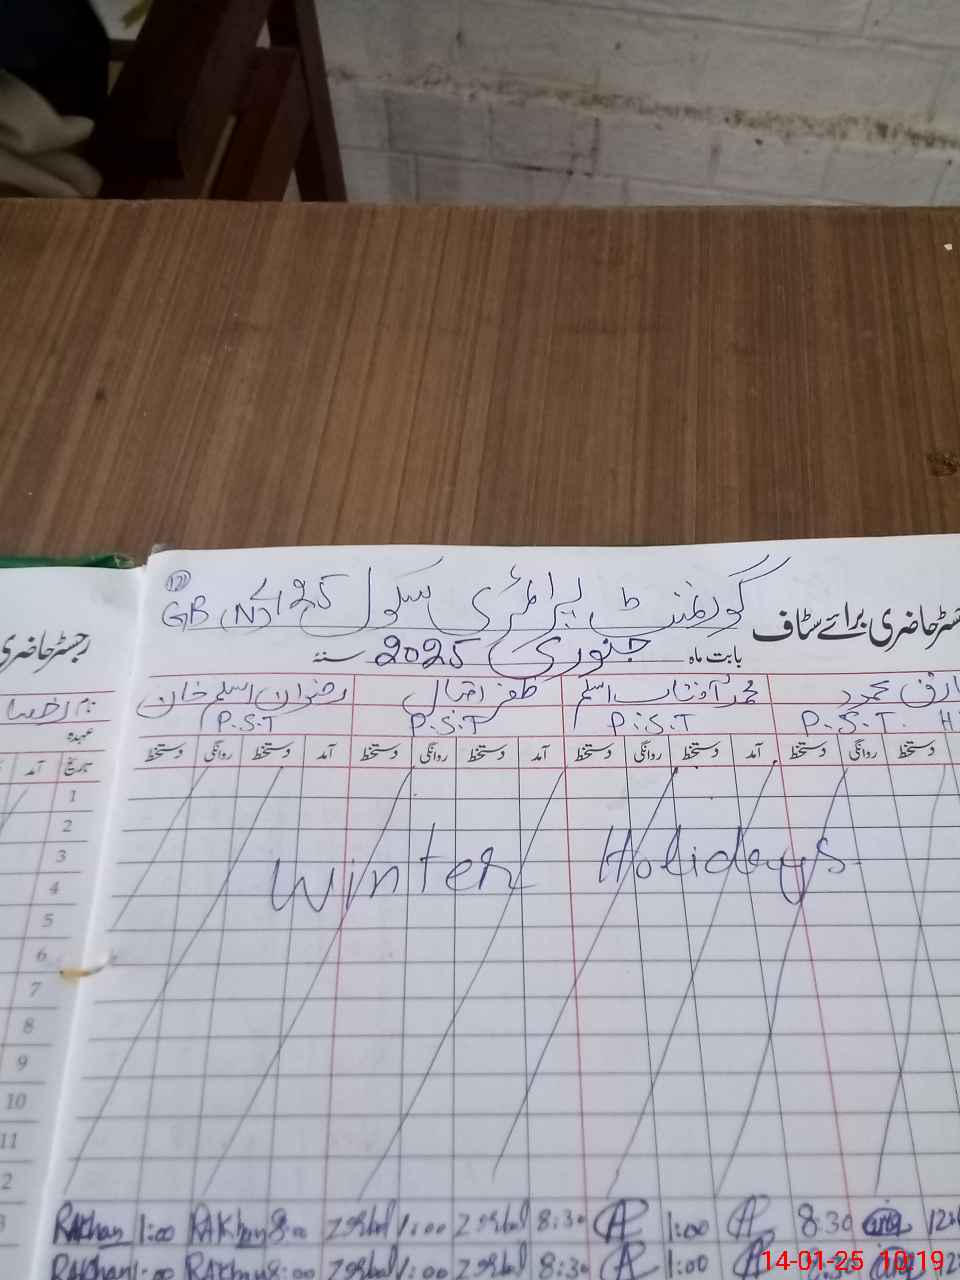 گورنمنٹ پرائمری سکول 125
GB (N)
12
رجسٹر حاضری برائے سٹاف
بابت ماہ جنوری 2025 سنہ
رجسٹر حاضری
محمد آفتاب اسلم ظفر اقبال رضوان اسلم خان
P.S.T. P.S.T P.S.T P.S.T
عہدہ
دستخط روانگی دستخط آمد دستخط روانگی دستخط آمد دستخط روانگی دستخط آمد دستخط روانگی دستخط
تاریخ آمد
1
2
3
4
5
6
7
8
9
10
11
Winter Holidays
RAKhan 1:00 RAKhan 8:00 1:00 8:30 1:00 8:30
RAKhan 1:00 RAKhan 8:00 1:00 8:30 1:00
14-01-25 10:19